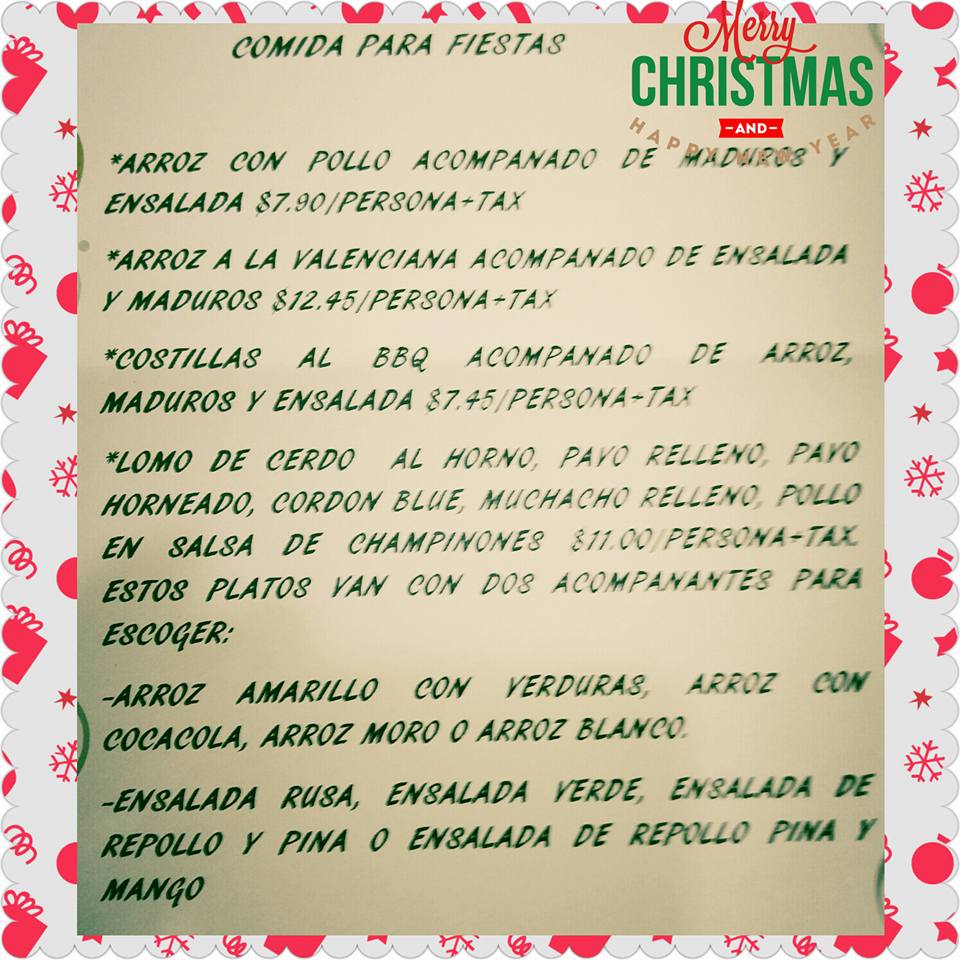 COMIDA PARA FIESTAS
Merry
CHRISTMAS
-AND-
HAPPY NEW YEAR
*ARROZ CON POLLO ACOMPANADO DE MADUROS Y
ENSALADA $7.90/PERSONA+TAX
*ARROZ A LA VALENCIANA ACOMPANADO DE ENSALADA
Y MADUROS $12.45/PERSONA+TAX
*COSTILLAS AL BBQ ACOMPANADO DE ARROZ,
MADUROS Y ENSALADA $7.45/PERSONA+TAX
*LOMO DE CERDO AL HORNO, PAVO RELLENO, PAVO
HORNEADO, CORDON BLUE, MUCHACHO RELLENO, POLLO
EN SALSA DE CHAMPINONES $11.00/PERSONA+TAX.
ESTOS PLATOS VAN CON DOS ACOMPANANTES PARA
ESCOGER:
-ARROZ AMARILLO CON VERDURAS, ARROZ CON
COCACOLA, ARROZ MORO O ARROZ BLANCO.
-ENSALADA RUSA, ENSALADA VERDE, ENSALADA DE
REPOLLO Y PINA O ENSALADA DE REPOLLO PINA Y
MANGO